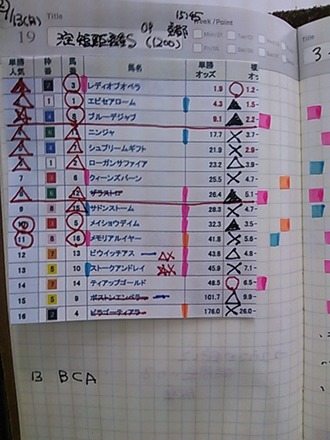 2/13(月) Title 淀短距離S OP 京都 (1200) 15:45 Week / Point
19
単勝人気 枠番 馬番 馬名 単勝オッズ 複オッ
3 レディオブオペラ 1.9 1.2-
1 エピセアローム 4.3 1.5-
8 ブルーデジャブ 9.1 2.2-
ニンジャ 17.7 3.7-
シュプリームギフト 21.9 2.9-
1 2 ローガンサファイア 23.2 3.9-
7 3 6 クィーンズバーン 25.5 4.7-
12 サラストロ 26.4 5.1-
9 8 15 サドンストーム 28.3 4.7-
10 5 メイショウデイム 32.3 3.5-
11 8 16 メモリアルイヤー 41.8 5.6-
12 7 13 ビウイッチアス 43.6 4.8-
13 5 10 ストークアンドレイ 45.9 7.1-
14 7 14 ティアップゴールド 48.5 6.5-
15 5 9 ボストンエンペラー 101.7 9.9-
16 2 4 ピラゴーティアラ 176.0 26.0-
13 BCA
Title
3